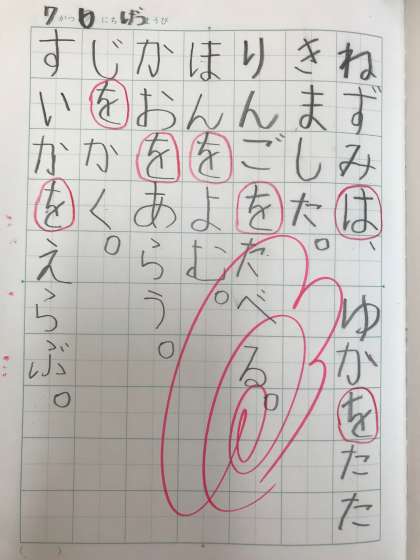 7がつ6にちげつようび
ねずみは、ゆかをたた
きました。
りんごをたべる。
ほんをよむ。
かおをあらう。
じをかく。
すいかをえらぶ。